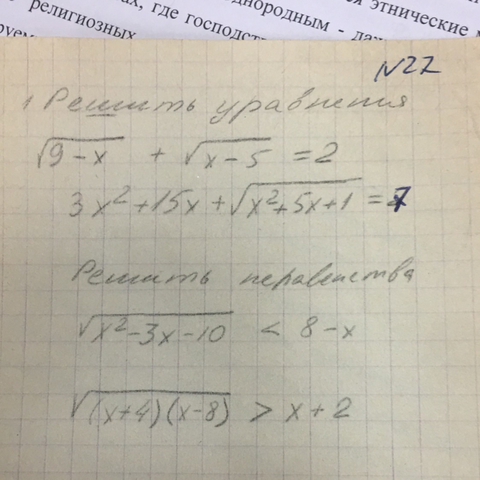 религиозных
где господст
однородным - да
этнические
№27
1 Решить уравнения
√(9-x) + √(x-5) = 2
3x²+15x+√(x²+5x+1) =7
Решить неравенства
√(x²-3x-10) < 8-x
√((x+4)(x-8)) > x+2